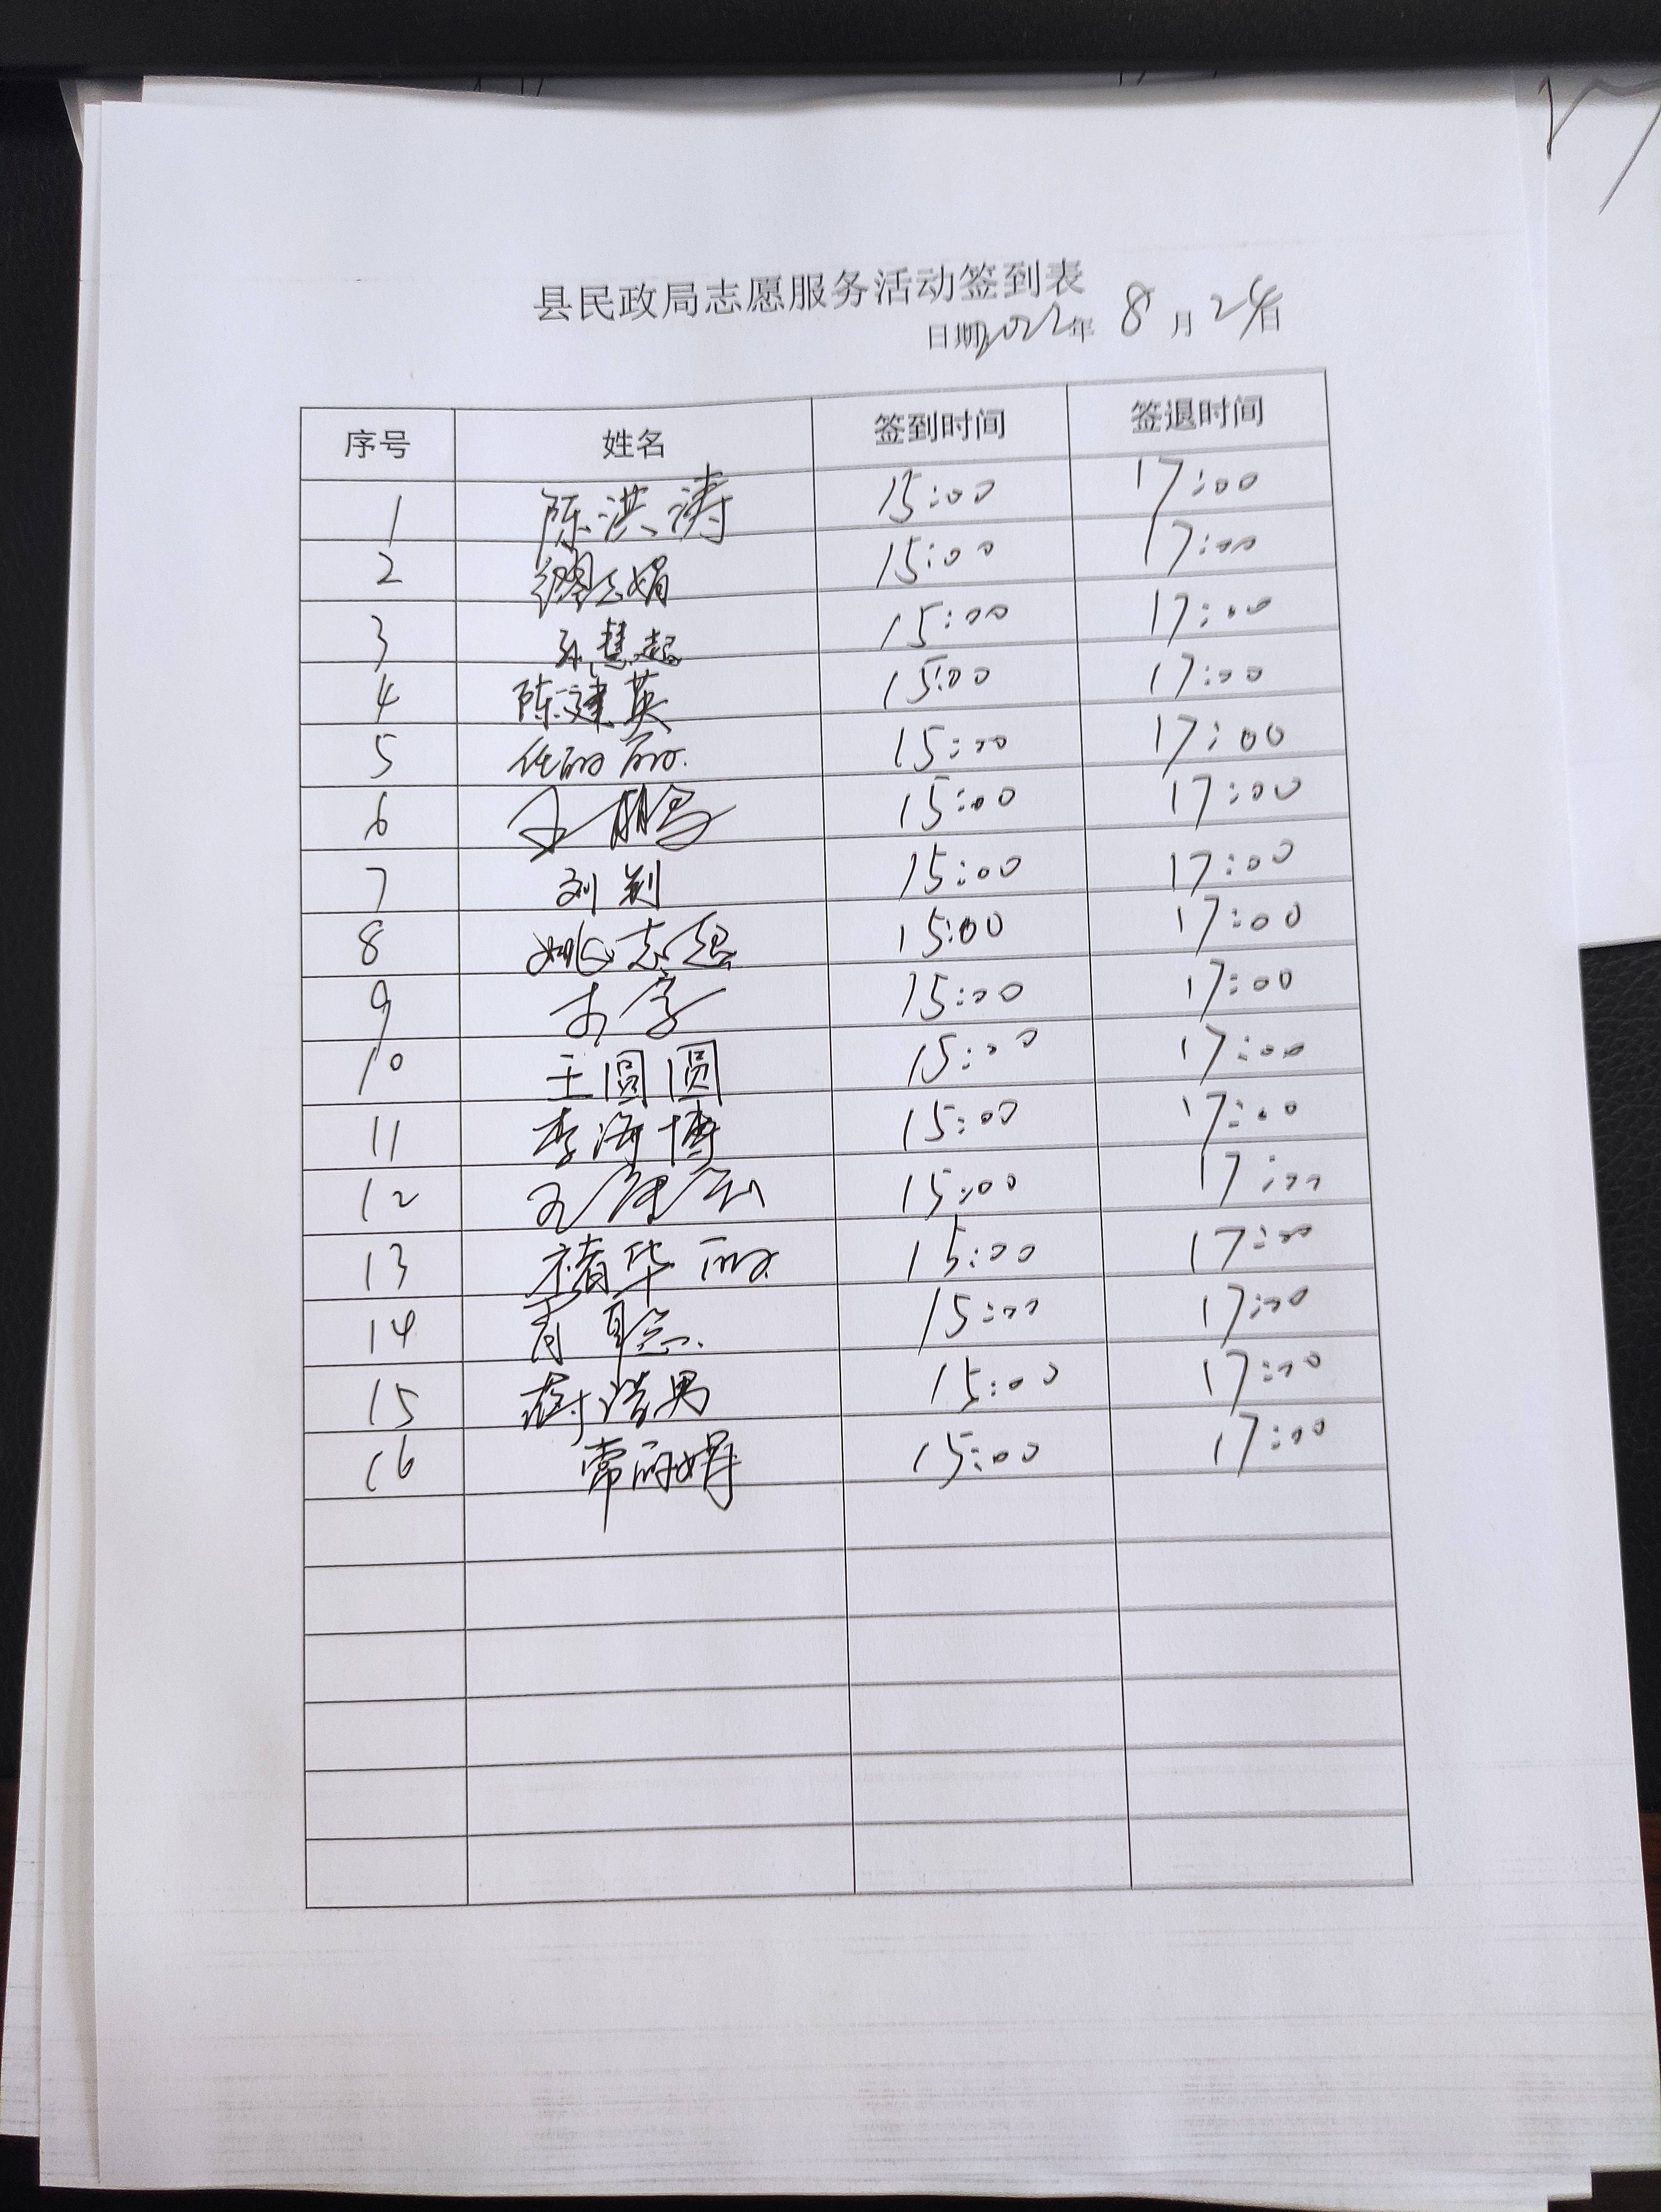 县民政局志愿服务活动签到表
日期2022年 8 月 24日
序号 姓名 签到时间 签退时间
1 陈洪涛 15:00 17:00
2 15:00 17:00
3 孙慧起 15:00 17:00
4 陈建英 15:00 17:00
5 任丽丽 15:00 17:00
6 王鹏 15:00 17:00
7 刘 15:00 17:00
8 姚志超 15:00 17:00
9 15:00 17:00
10 王圆圆 15:00 17:00
11 李海博 15:00 17:00
12 15:00 17:00
13 褚华丽 15:00 17:00
14 聪 15:00 17:00
15 浩男 15:00 17:00
16 常丽娟 15:00 17:00